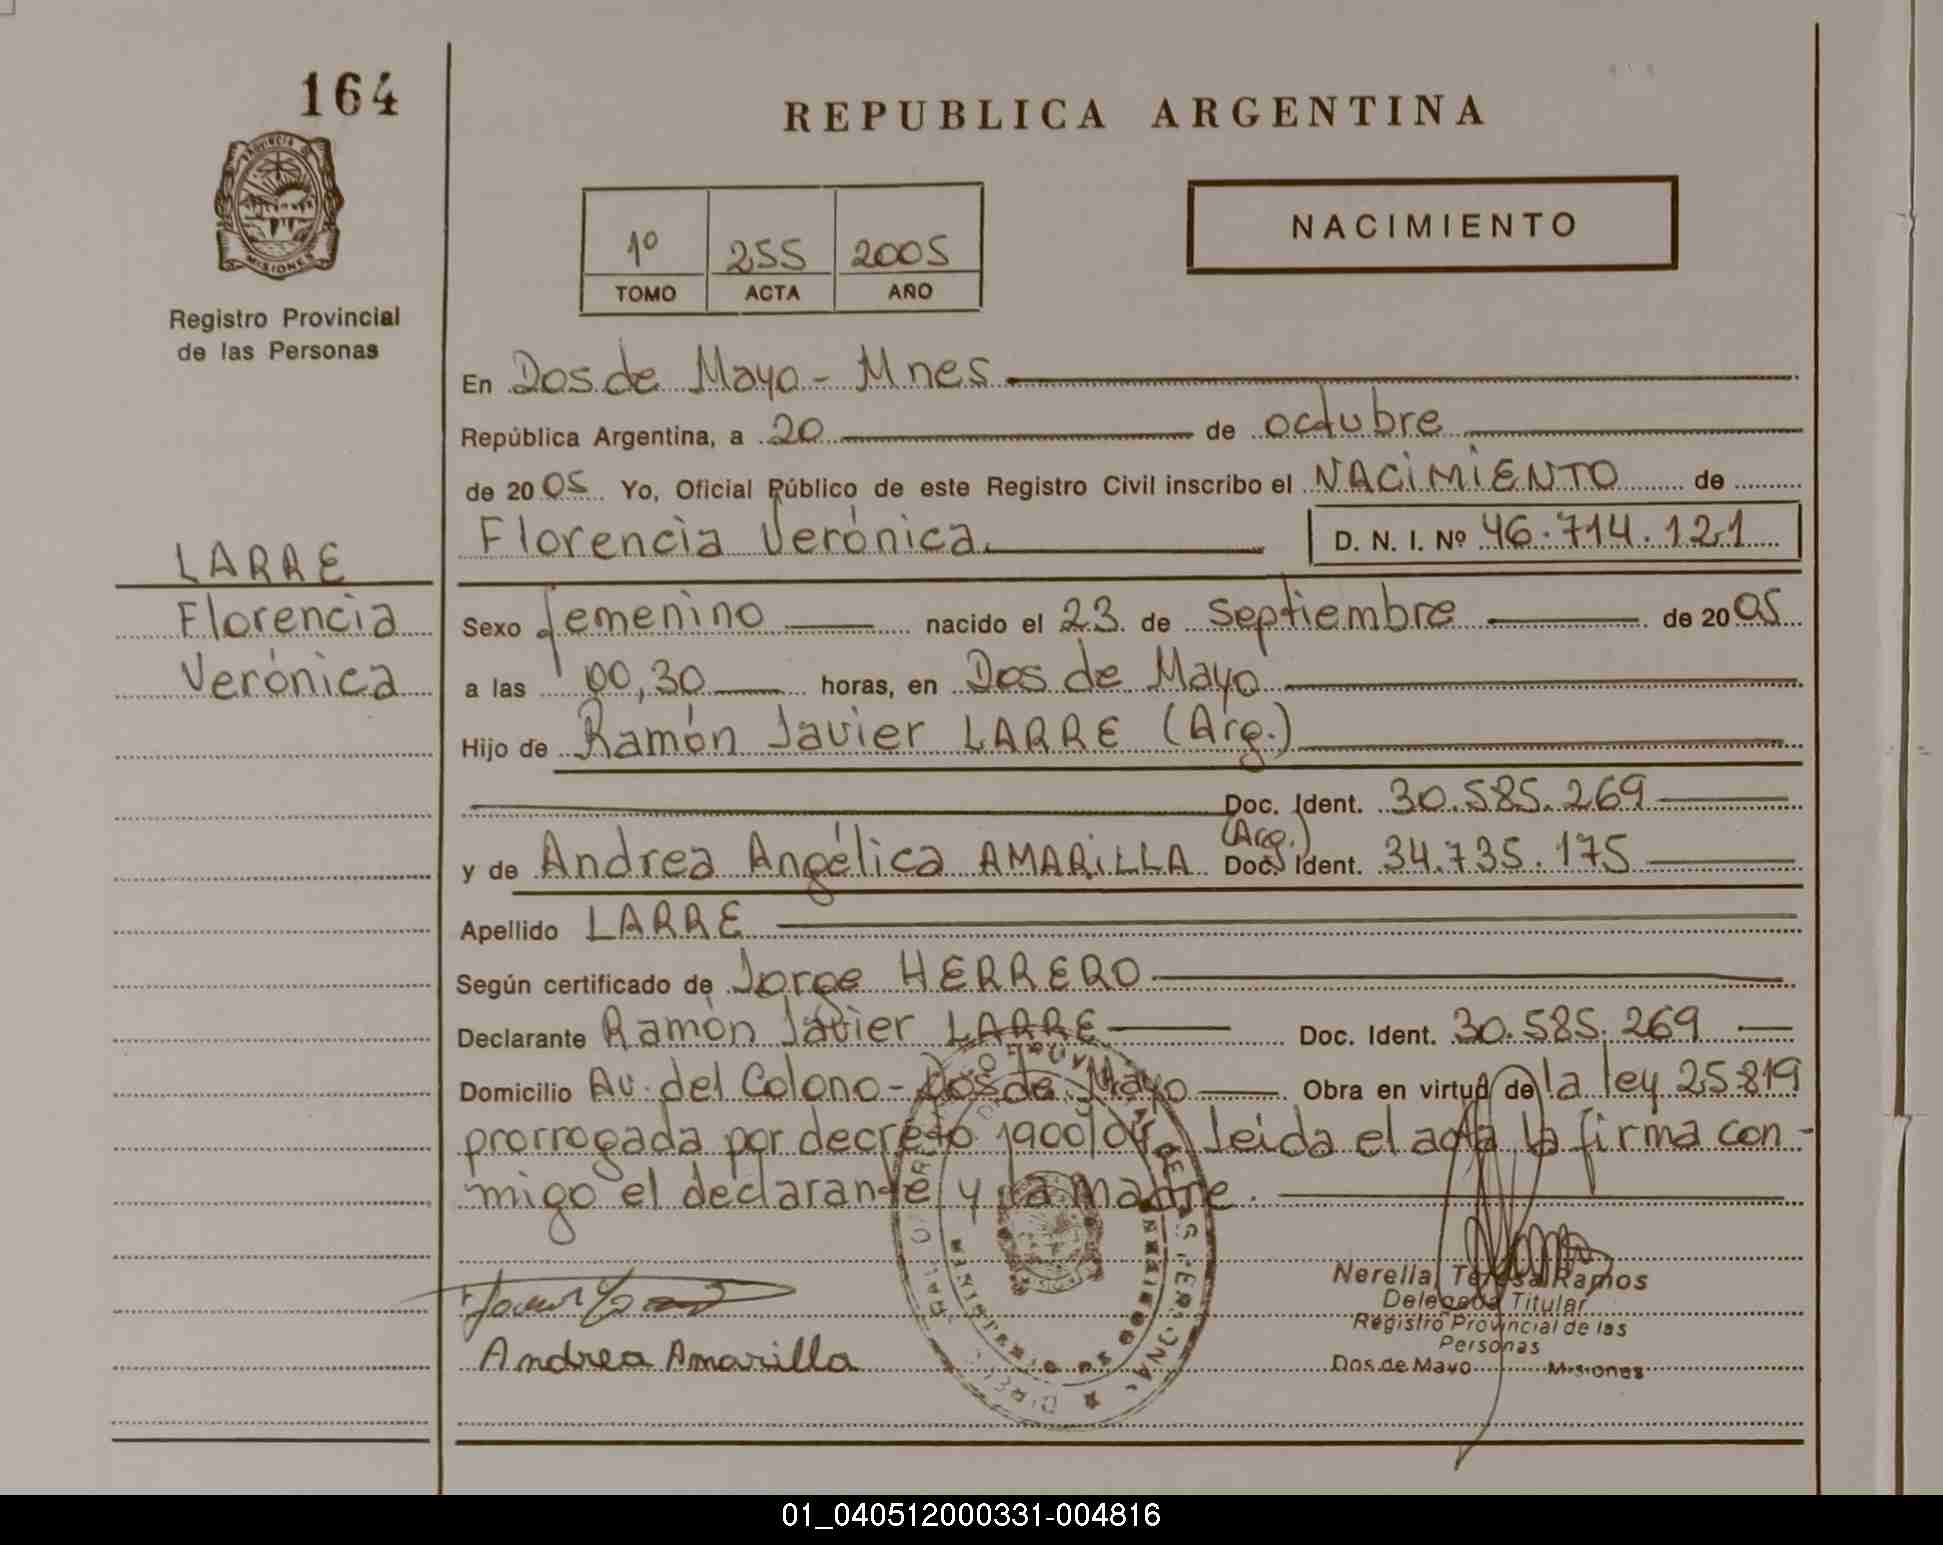 164
REPUBLICA ARGENTINA
PROVINCIA D
MISIONES
Registro Provincial
de las Personas
1º 255 2005
TOMO ACTA AÑO
NACIMIENTO
En Dos de Mayo - Mnes
República Argentina, a 20 de octubre
de 2005 Yo, Oficial Público de este Registro Civil inscribo el NACIMIENTO de
Florencia Verónica D. N. I. Nº 46.714.121
LARRE
Florencia
Verónica
Sexo femenino nacido el 23 de septiembre de 2005
a las 00,30 horas, en Dos de Mayo
Hijo de Ramón Javier LARRE (Arg.)
Doc. Ident. 30.585.269
(Arg.)
y de Andrea Angélica AMARILLA Doc. Ident. 34.735.175
Apellido LARRE
Según certificado de Jorge HERRERO
Declarante Ramón Javier LARRE Doc. Ident. 30.585.269
Domicilio Av. del Colono - Dos de Mayo Obra en virtud de la ley 25819
prorrogada por decreto 1900/04 Leida el acta la firma con-
migo el declarante y la madre.
Nerella Teresa Ramos
Delegada Titular
Registro Provincial de las
Personas
Dos de Mayo Misiones
Andrea Amarilla
01_040512000331-004816